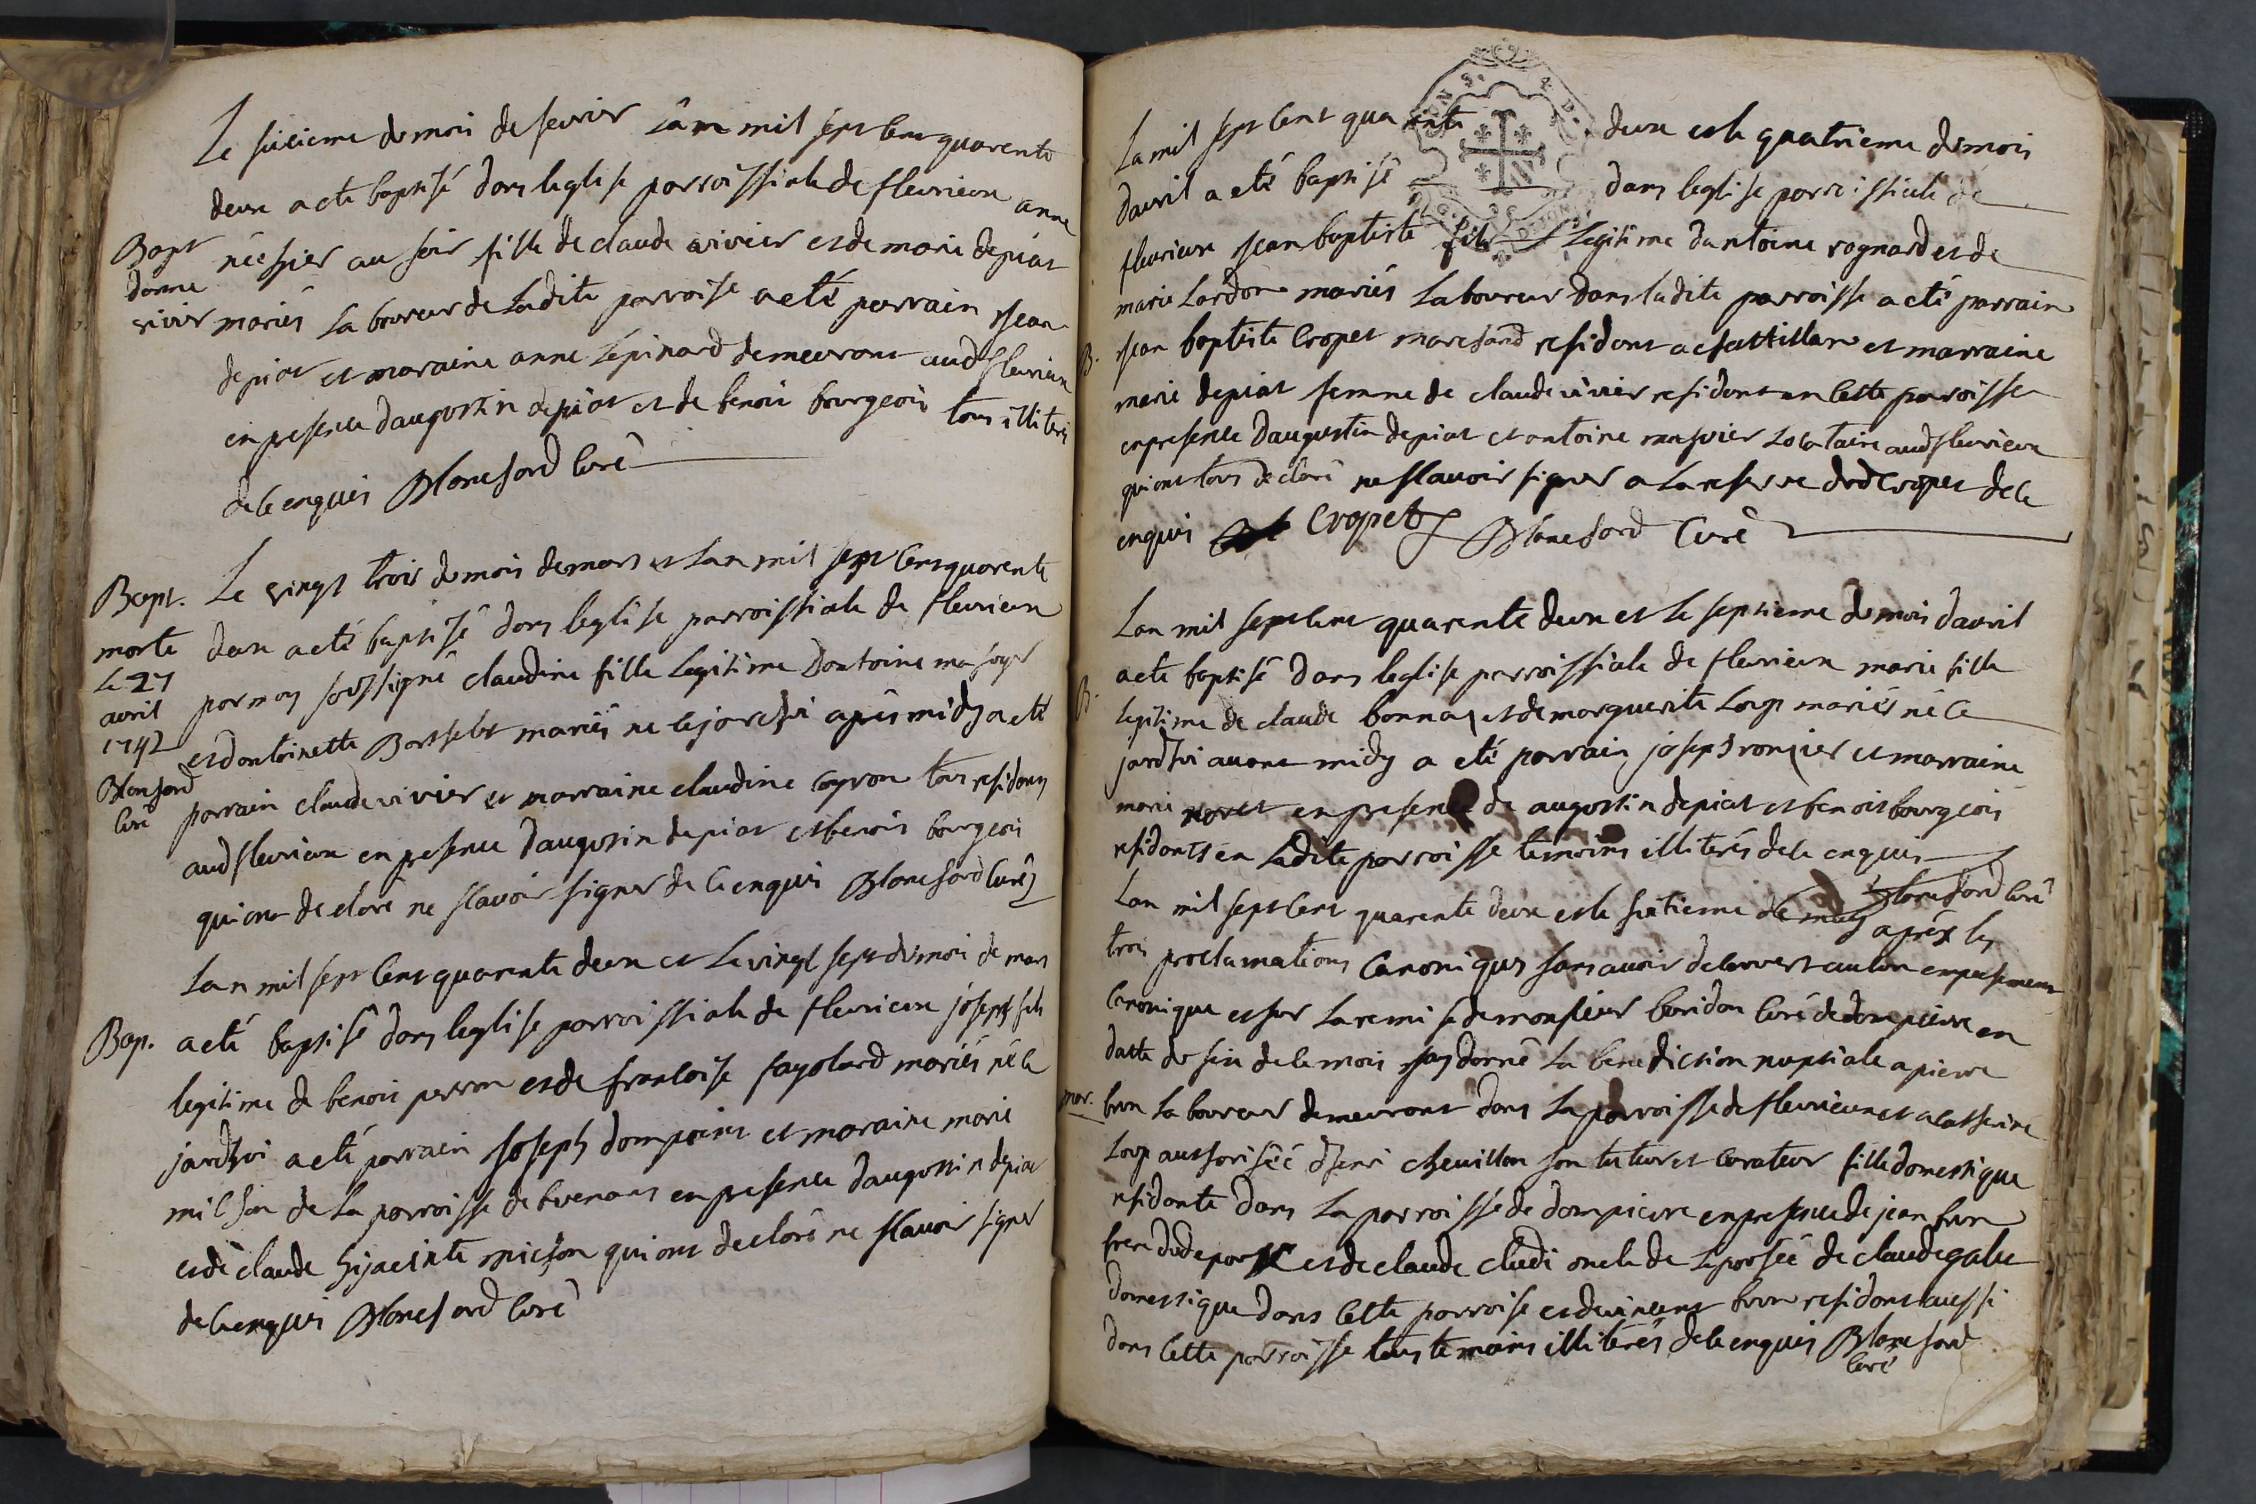 Le sixieme du mois de fevrier l'an mil sept cens quarente
deux a eté baptisé dans leglise parroissiale de fleurieux anne
Bapt
danne
vivier
née hier au soir fille de claude vivier et de marie depiat
mariés laboureur de ladite parroisse a eté parrain Jean
depiat et maraine anne Lépinard demeurant aud fleurieux
en presence daugustin depiat et de benoit bourgeois tous illiterés
de ce enquis Blancford Curé
Bapt.
morte
le 27
avril
1742
Blanford
curé
Le vingt trois du mois de mars et lan mil sept cens quarente
deux a eté baptisé dans leglise parroissiale de fleurieux
par moy soussigné claudine fille legitime dantoine
et dantoinette mariés né cejourdhui aprés midy a eté
parrain claude vivier et marraine claudine tous residans
aud fleurieux en presence daugustin depiat et benoit bourgeois
qui ont declaré ne sçavoir signer de ce enquis Blancford Curé
Lan mil sept cens quarente deux et le vingt sept du mois de mars
Bap. a eté baptisé dans leglise parroissiale de fleurieux joseph fils
legitime de benoit perron et de francoise fayolard mariés né ce
jourdhui a eté parrain Joseph dompoint et maraine marie
de la parroisse de buenans en presence daugustin depiat
et de claude hijacinte qui ont declaré ne sçavoir signer
de ce enquis Blancford curé
La mil sept cens quarente deux et le quatrieme du mois
davril a eté baptisé dans leglise parroissiale de
fleurieux Jean baptiste fils legitime dantoine rognard et de
marie Lardon mariés laboureur dans ladite parroisse a eté parrain
B. Jean baptiste Cropet marchand resident a chatillon et marraine
marie depiat femme de claude vivier residant en cette parroisse
en presence daugustin depiat et antoine locataire aud fleurieux
qui ont tous declaré ne sçavoir signer a la reserve dud Cropet de ce
enquis Cropet Blancford Curé
Lan mil sept cens quarente deux et le septieme du mois davril
a eté baptisé dans leglise parroissiale de fleurieux marie fille
B. legitime de claude et de marguerite Loup mariés né ce
jourdhui avant midy a eté parrain joseph et marraine
marie en presence de augustin depiat et benoit bourgeois
residants en ladite parroisse temoins illiterés de ce enquis
Blancford curé
Lan mil sept cens quarente deux et le sixtieme de may aprés les
trois proclamations canoniques sans avoir decouvert aucun empechement
canonique et sur la remise de monsieur curé de dompierre en
datte du six de ce mois Jay donné la benediction nuptiale a pierre
mar. brun laboureur demeurant dans la parroisse de fleurieux et a catherine
Loup authorisée dhenri chevillon son tuteur et curateur fille domestique
residante dans la parroisse de dompierre en presence de jean brun
frere et de claude oncle de lepousée de claude
domestique dans cette parroise et de vincent brun residant aussi
dans cette parroisse tous temoins illiterés de ce enquis Blancford
curé